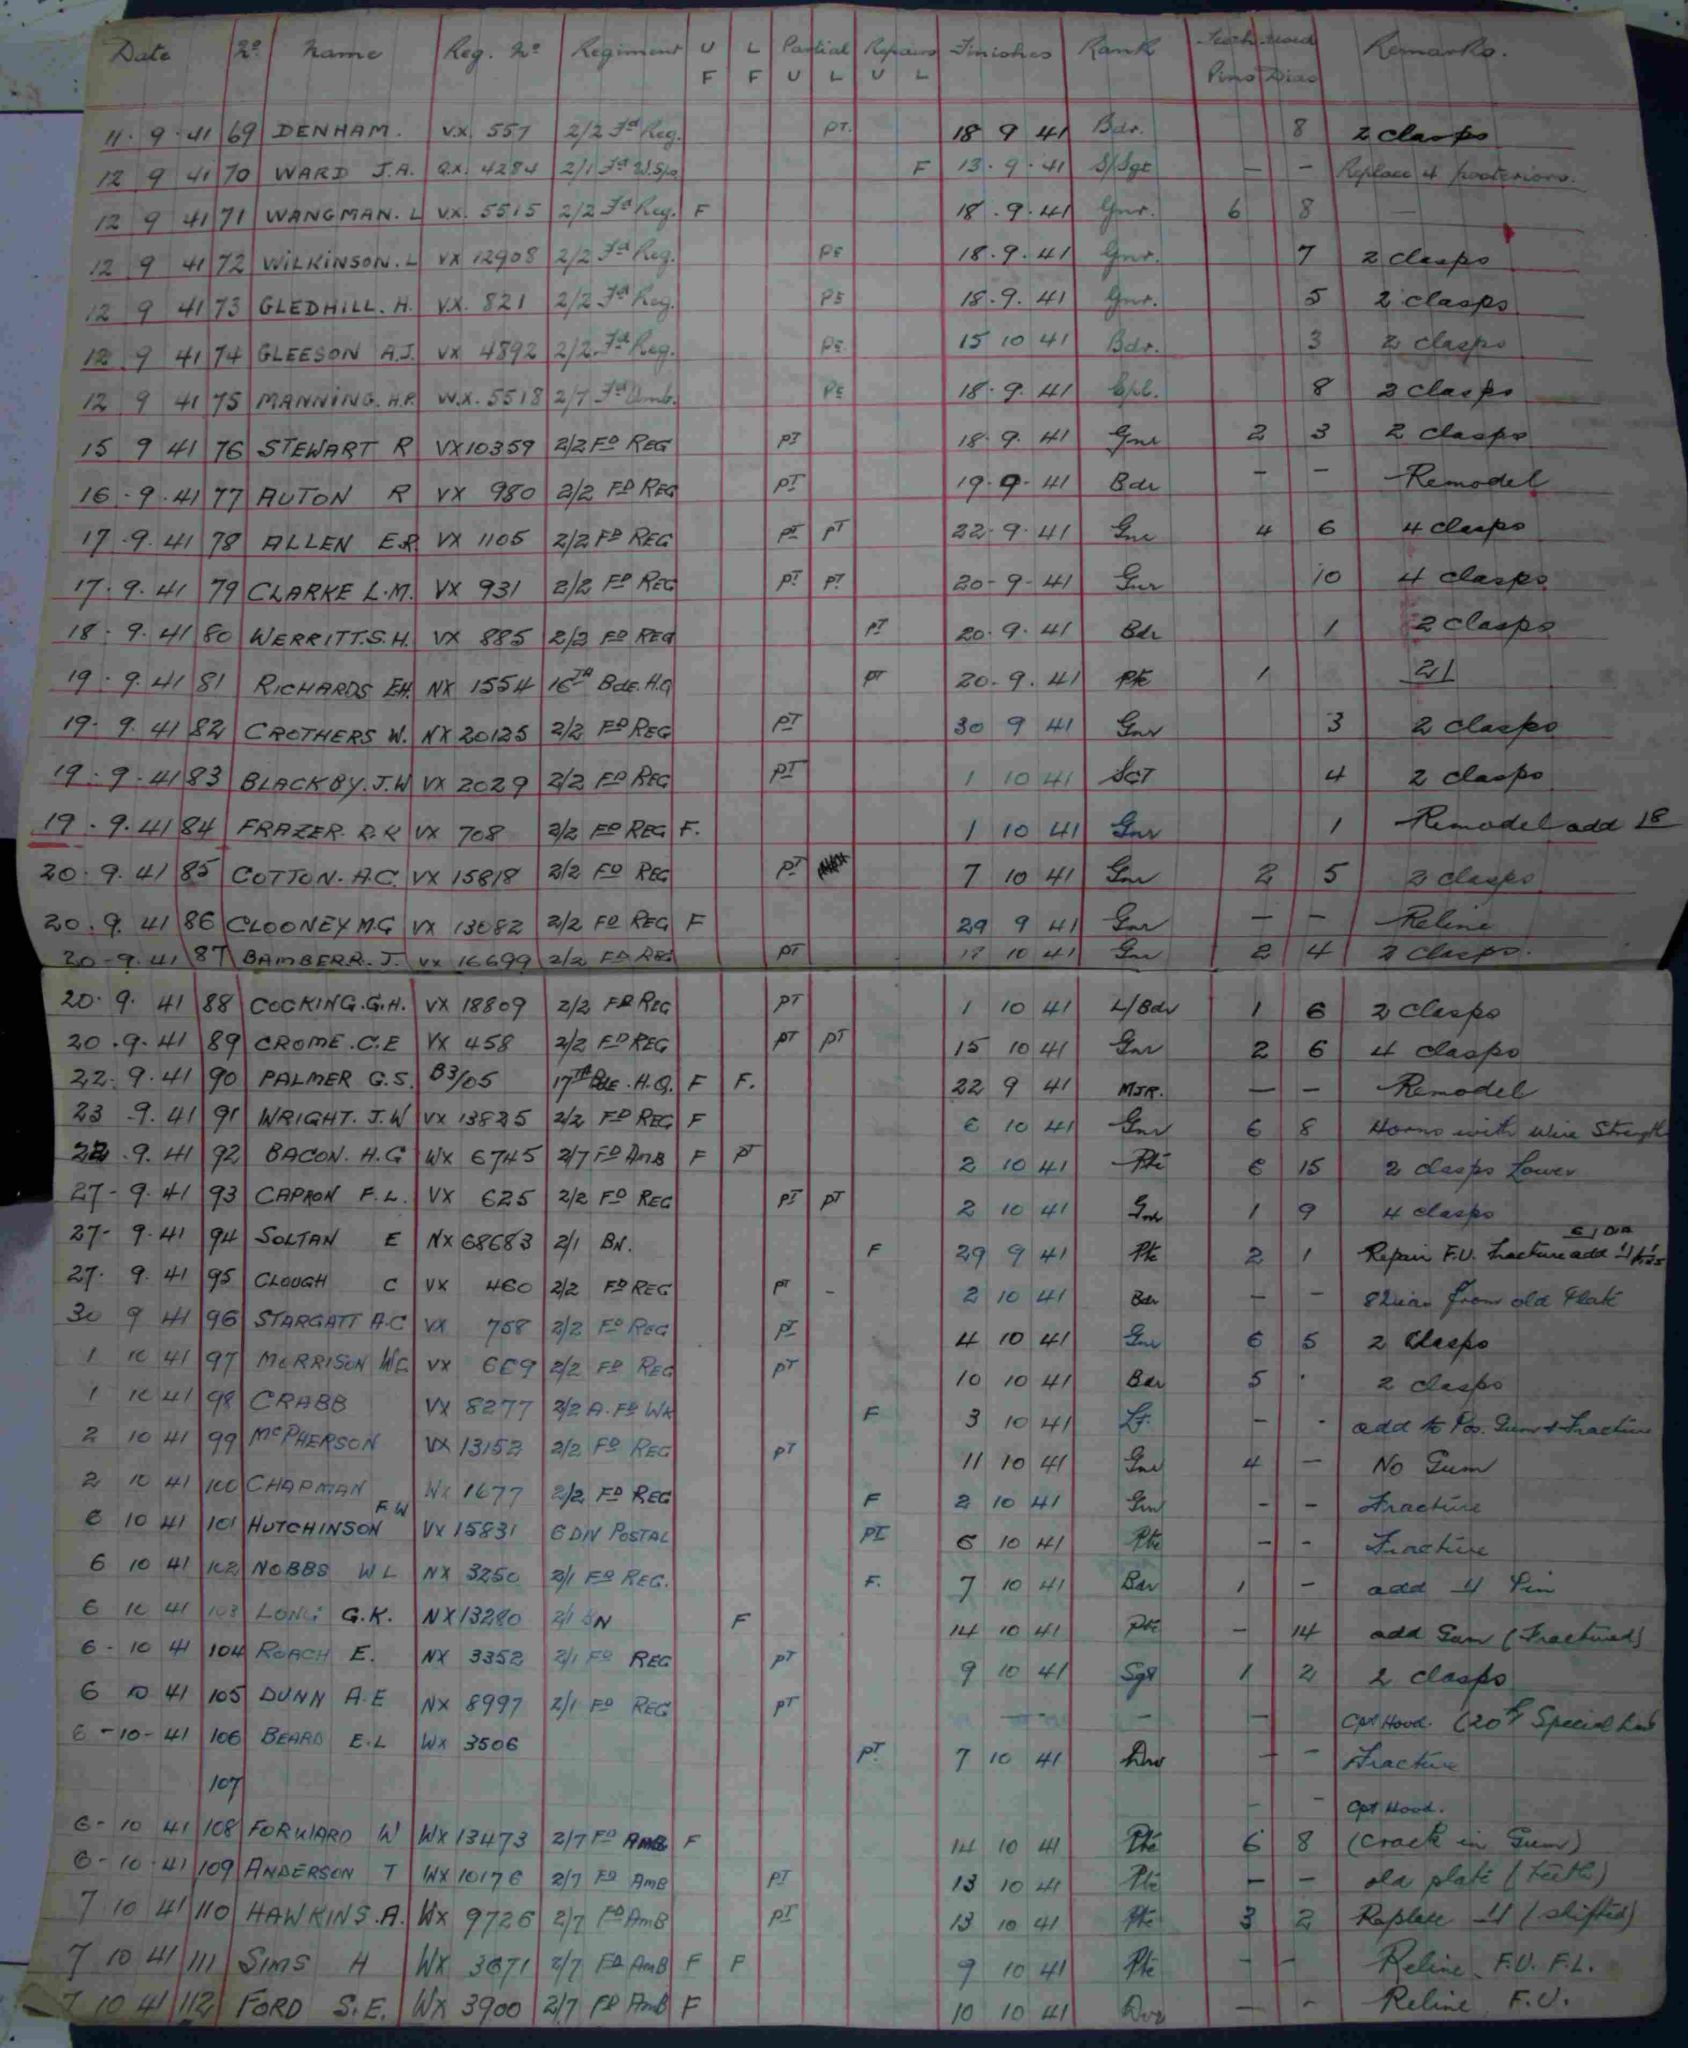 Date No Name Reg. No Regiment U L Partial Repairs Finishes Rank Teeth Used Remarks.
F F U L U L Pins Dias
11 . 9 . 41 69 DENHAM. VX. 557 2/2 Fd Reg. PT. 18 9 41 Bdr. 8 2 clasps
12 9 41 70 WARD J.A. QX. 4284 2/1 Fd W.Sps. F 13 . 9 . 41 S/Sgt — — Replace 4 posteriors.
12 9 41 71 WANGMAN. L VX. 5515 2/2 Fd Reg. F 18 . 9 . 41 Gnr. 6 8 —
12 9 41 72 WILKINSON. L VX 12908 2/2 Fd Reg. Pt 18 . 9 . 41 Gnr. 7 2 clasps
12 9 41 73 GLEDHILL. H. VX. 821 2/2 Fd Reg. Pt 18 . 9. 41 Gnr. 5 2 clasps
12 9 41 74 GLEESON A.J. VX 4892 2/2 Fd Reg. Pt. 15 10 41 Bdr. 3 2 clasps
12 9 41 75 MANNING. H.P. W.X. 5518 2/7 Fd Amb. Pt 18 . 9. 41 Cpl. 8 2 clasps
15 9 41 76 STEWART R VX10359 2/2 FD REG PT 18 . 9. 41 Gnr 2 3 2 clasps
16 . 9 . 41 77 AUTON R VX 980 2/2 FD REG PT 19 . 9 . 41 Bdr — — Remodel
17 . 9. 41 78 ALLEN E.R. VX 1105 2/2 FD REG PT PT 22 . 9 . 41 Gnr 4 6 4 clasps
17 . 9. 41 79 CLARKE L.M. VX 931 2/2 FD REG PT PT. 20 - 9 - 41 Gnr 10 4 clasps
18 . 9. 41 80 WERRITT.S.H. VX 885 2/2 FD REG PT 20 . 9 . 41 Bdr 1 2 clasps
19 . 9. 41 81 RICHARDS E.H. NX 1554 16TH Bde. H.Q PT 20 . 9 . 41 Pte 1 21
19. 9. 41 82 CROTHERS W. NX 20125 2/2 FD REG PT 30 9 41 Gnr 3 2 clasps
19 . 9 . 41 83 BLACKBY. J.W VX 2029 2/2 FD REG PT 1 10 41 SGT 4 2 clasps
19 . 9. 41 84 FRAZER. R.R VX 708 2/2 FD REG F. 1 10 41 Gnr 1 Remodel add
20 . 9. 41 85 COTTON. A.C. VX 15818 2/2 FD REG PT 7 10 41 Gnr 2 5 2 clasps
20 . 9. 41 86 CLOONEY M.G VX 13082 2/2 FD REG F 29 9 41 Gnr — — Reline
20 - 9. 41 87 BAMBER R. J. VX 16699 2/2 FD REG PT 10 41 Gnr 2 4 2 clasps.
20. 9. 41 88 COCKING. G.H. VX 18809 2/2 FD REG PT 1 10 41 L/Bdr 1 6 2 clasps
20 . 9. 41 89 CROME . C.E VX 458 2/2 FD REG PT PT 15 10 41 Gnr 2 6 4 clasps
22. 9. 41 90 PALMER G.S. B3/05 17TH Bde . H.Q. F F. 22 9 41 MJR. — — Remodel
23 . 9. 41 91 WRIGHT. J.W VX 13825 2/2 FD REG F 6 10 41 Gnr 6 8 Horns with wire Strength
. 9. 41 92 BACON. H.G WX 6745 2/7 FD AMB F PT 2 10 41 Pte 6 15 2 clasps Lower
27 - 9. 41 93 CAPRON F.L. VX 625 2/2 FD REG PT PT 2 10 41 Gnr 1 9 4 clasps
27 - 9. 41 94 SOLTAN E NX 68683 2/1 BN. F 29 9 41 Pte 2 1 Repair F.U. Fracture add
27. 9. 41 95 CLOUGH C VX 460 2/2 FD REG PT - 2 10 41 Bdr — — 8 Dias from old Plate
30 9 41 96 STARGATT A.C VX 758 2/2 FD REG PT 4 10 41 Gnr 6 5 2 Clasps
1 10 41 97 MORRISON VX 669 2/2 FD REG PT 10 10 41 Bdr 5 . 2 clasps
1 10 41 98 CRABB VX 8277 2/2 A. FD WK F 3 10 41 Lt. - - add to Pos. Gum & Fracture
2 10 41 99 McPHERSON VX 13152 2/2 FD REG PT 11 10 41 Gnr 4 — No Gum
2 10 41 100 CHAPMAN 1677 2/2 FD REG F 2 10 41 Gnr - - Fracture
6 10 41 101 HUTCHINSON F W VX 15831 6 DIV POSTAL PT 6 10 41 Pte - - Fracture
6 10 41 102 NOBBS W L NX 3250 2/1 FD REG. F. 7 10 41 Bdr 1 - add 4 Pin
6 10 41 103 LONG G.K. NX13280 2/1 BN F 14 10 41 Pte - 14 add Gum (Fractured)
6 - 10 41 104 ROACH E. NX 3352 2/1 FD REG PT 9 10 41 Sgt 1 2 2 clasps
6 10 41 105 DUNN A.E NX 8997 2/1 FD REG PT — — — Cpt Hood. (20 Special
6 - 10 - 41 106 BEARD E.L WX 3506 PT 7 10 41 Dvr - - Fracture
107
- - Cpt Hood.
6 - 10 41 108 FORWARD W WX 13473 2/7 FD AMB F 14 10 41 Pte 6 8 (Crack in Gum)
6 - 10 - 41 109 ANDERSON T WX 10176 2/7 FD AMB PT 13 10 41 Pte — — old plate (teeth)
7 10 41 110 HAWKINS .A. WX 9726 2/7 FD AMB PT 13 10 41 Pte 3 2 Replace 4 (shifted)
7 10 41 111 SIMS H WX 3671 2/7 FD AMB F F 9 10 41 Pte - - Reline F.U. F.L.
7 10 41 112 FORD S.E. WX 3900 2/7 FD AMB F 10 10 41 Dvr — - Reline F.U.